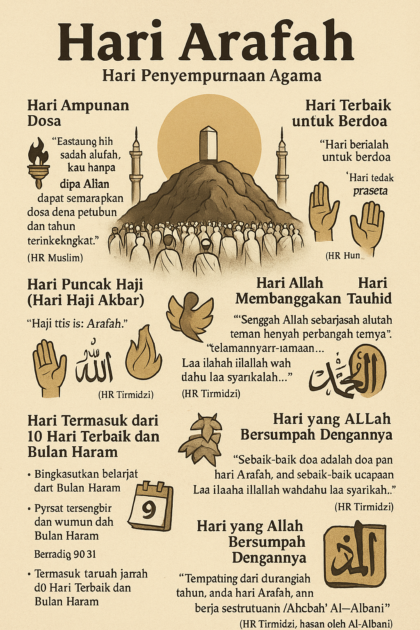 Hari Arafah
Hari Penyempurnaan Agama
Hari Ampunan
Dosa
"Eastaung hih
sadah alufah,
kau hanpa
dipa Alian
dapat semarapkan
dosa dena petubun
dan tahun
terinkekngkat."
(HR Muslim)
Hari Terbaik
untuk Berdoa
"Hari berialah
untuk berdoa
'Hari tedak
praseta
(HR Hun
Hari Puncak Haji
(Hari Haji Akbar)
"Haji ttis is: Arafah."
الله
(HR Tirmidzi)
Hari Allah Hari
Membanggakan Tauhid
"'Senggah Allah sebarjasah alutah
teman henyah perbangah temya".
"telamannyarr-iamaan...
Laa ilahah iilallah wah
dahu laa syarıkalah..."
(HR Tirmidzi)
Hari Termasuk dari
10 Hari Terbaik dan
Bulan Haram
• Bingkasutkan belarjat
dart Bulan Haram
9
• Pyrsat tersengbir
dan wumun dah
Bulan Haram
Berradig 90 31
• Termasuk taruah jarrah
d0 Hari Terbaik dan
Bulan Haram
Hari yang ALLah
Bersumpah Dengannya
"Sebaik-baik doa adalah doa pan
hari Arafah, and sebaik-baik ucapaan
Laa ilaaha illallah wahdahu laa syarikah.."
(HR Tirmidzi)
Hari yang Allah
Bersumpah
Dengannya
"Tempatıng dari durangiah
tahun, anda hari Arafah, ann
berja sestrutuann /Ahcbah' Al—Albani"
(HR Tirmidzi, hasan oleh Al-Albani)